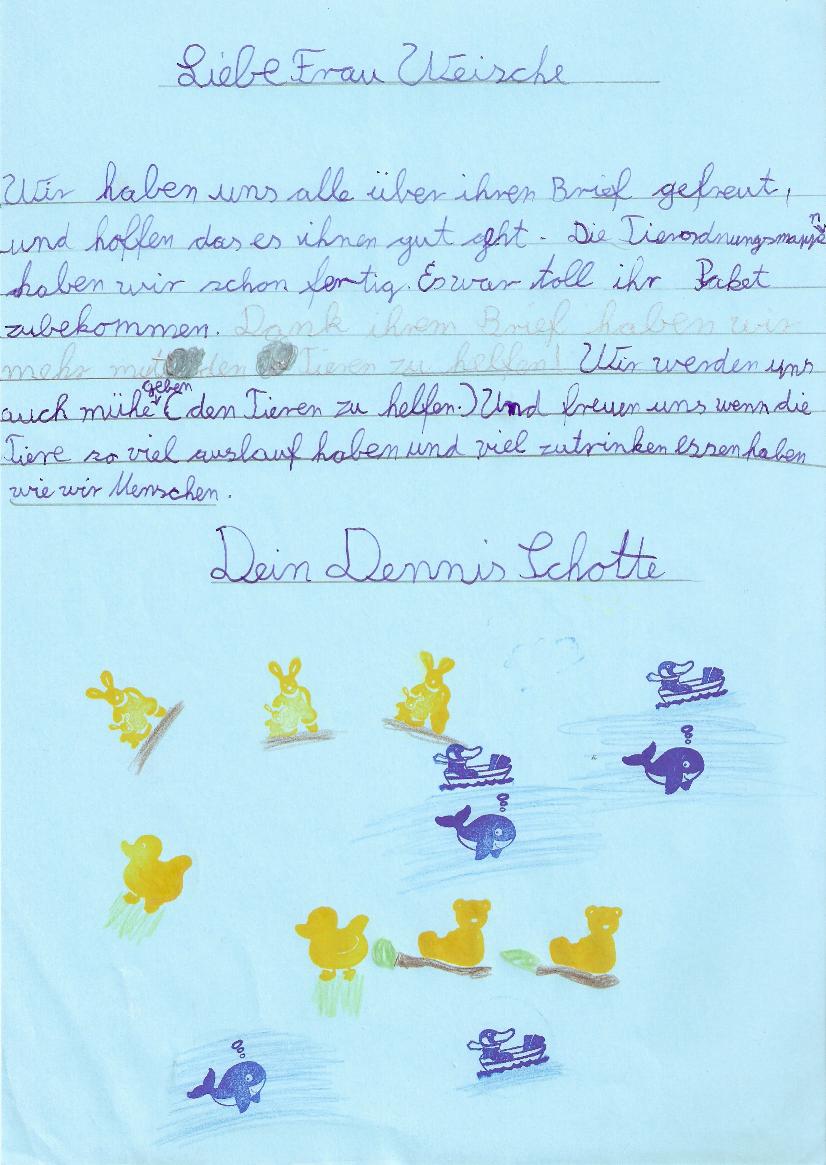 Liebe Frau Weische
Wir haben uns alle über ihren Brief gefreut,
und hoffen das es ihnen gut geht. Die Tierordnungsmappen
haben wir schon fertig. Es war toll ihr Paket
zubekommen. Dank ihrem Brief haben wir
mehr mut den Tieren zu helfen! Wir werden uns
auch mühe geben (den Tieren zu helfen.) Und freuen uns wenn die
Tiere so viel auslauf haben und viel zutrinken essen haben
wie wir Menschen.
Dein Dennis Schotte